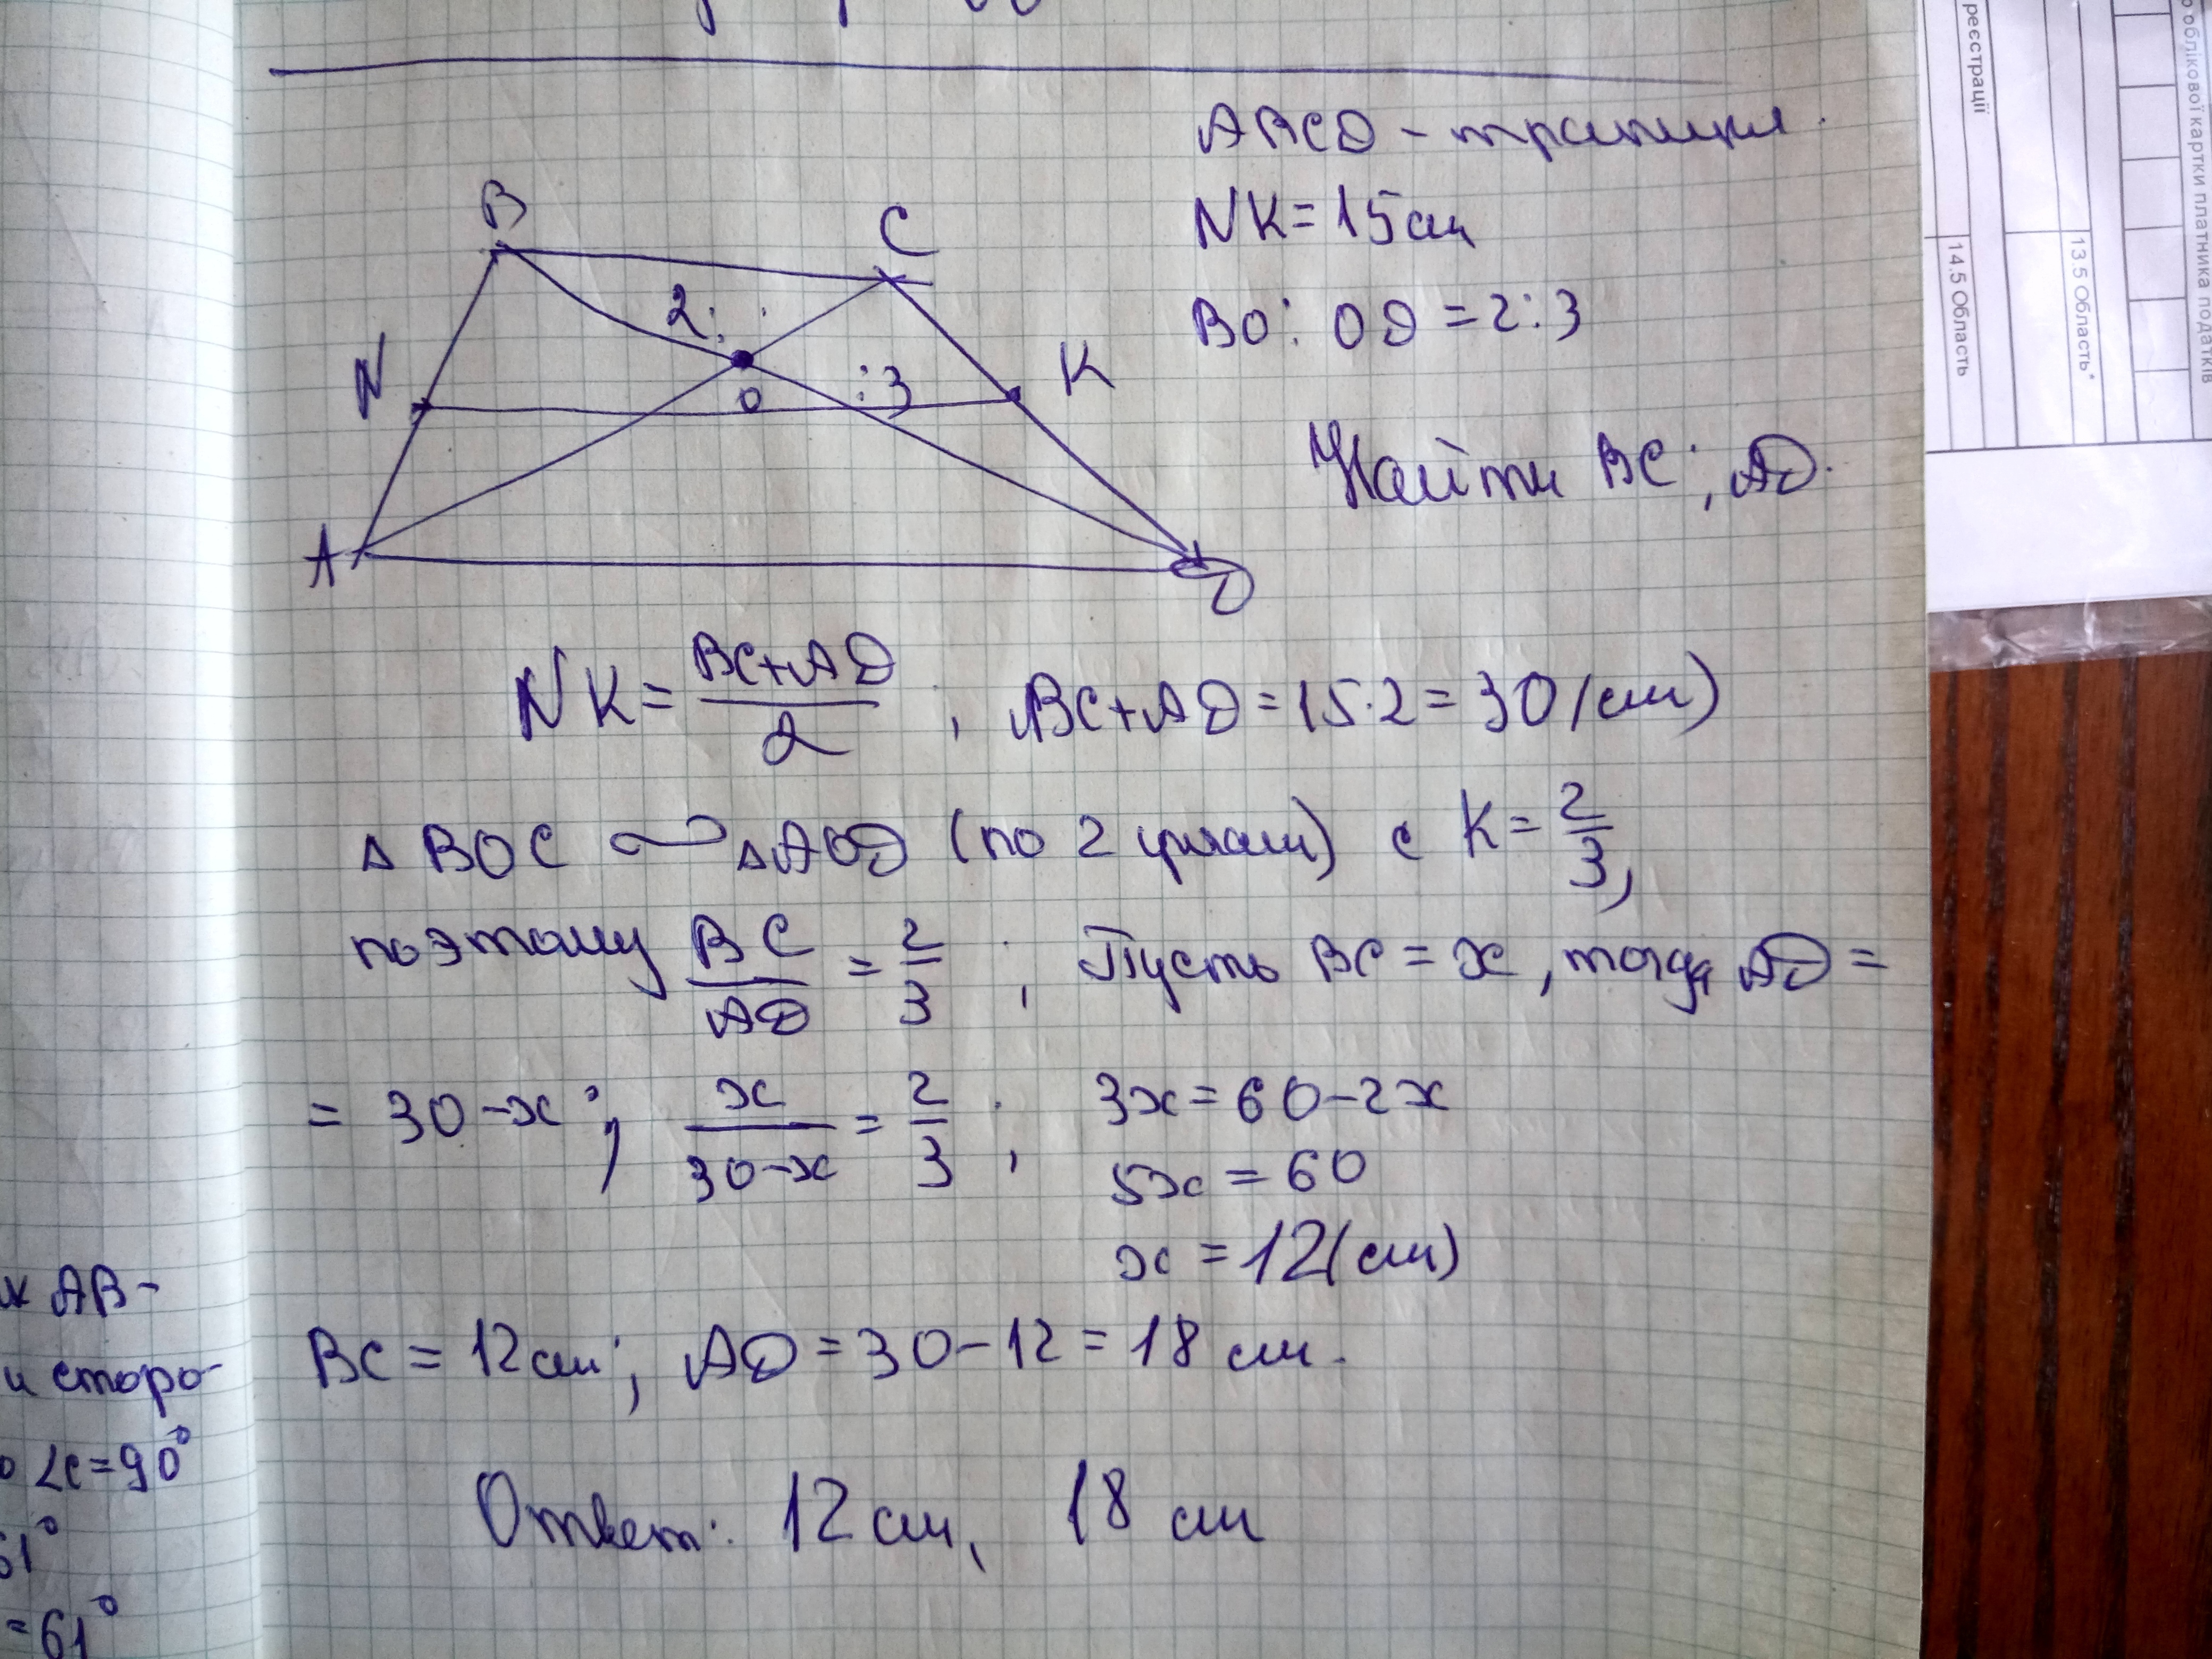 ABCD - трапеция.
NK = 15 см
BO : OD = 2:3
Найти BC; AD.
B
C
2:
N
K
:3
O
A
D
NK = (BC+AD)/2, BC+AD = 15·2 = 30 (см)
△ BOC ∾ △AOD (по 2 углам) с K = 2/3,
поэтому BC/AD = 2/3; Пусть BC = x, тогда AD =
= 30 - x; x/(30-x) = 2/3; 3x = 60 - 2x
5x = 60
x = 12 (см)
BC = 12 см; AD = 30 - 12 = 18 см.
Ответ: 12 см, 18 см
AB-
и сторо-
∠C = 90°
61°
= 61°
реєстрації
14.5 Область
13.5 Область*
облікової картки платника податків